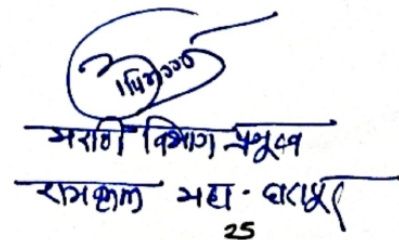 मराठी विभाग प्रमुख
रामकृष्ण महा. दारापूर
25